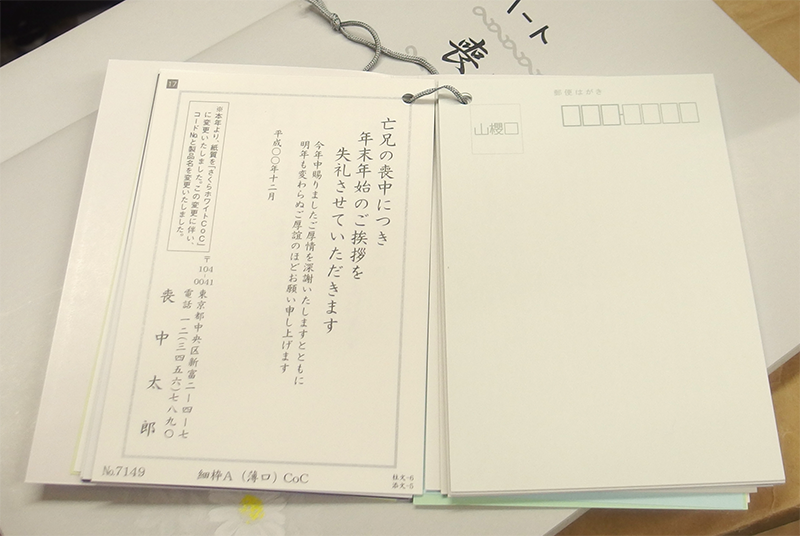 ート
喪
17
亡兄の喪中につき
年末年始のご挨拶を
失礼させていただきます
今年中賜りましたご厚情を深謝いたしますとともに
明年も変わらぬご厚誼のほどお願い申し上げます
平成〇〇年十二月
※本年より、紙質を「さくらホワイトCoC」
に変更いたしました。この変更に伴い、
コードNoと製品名を変更いたしました。
〒
104-
0041
東京都中央区新富二ー四ー七
電話 一二(三四五六)七八九〇
喪中太郎
No.7149
細枠A (薄口) CoC
杜文-6
添文-5
郵便はがき
山櫻□